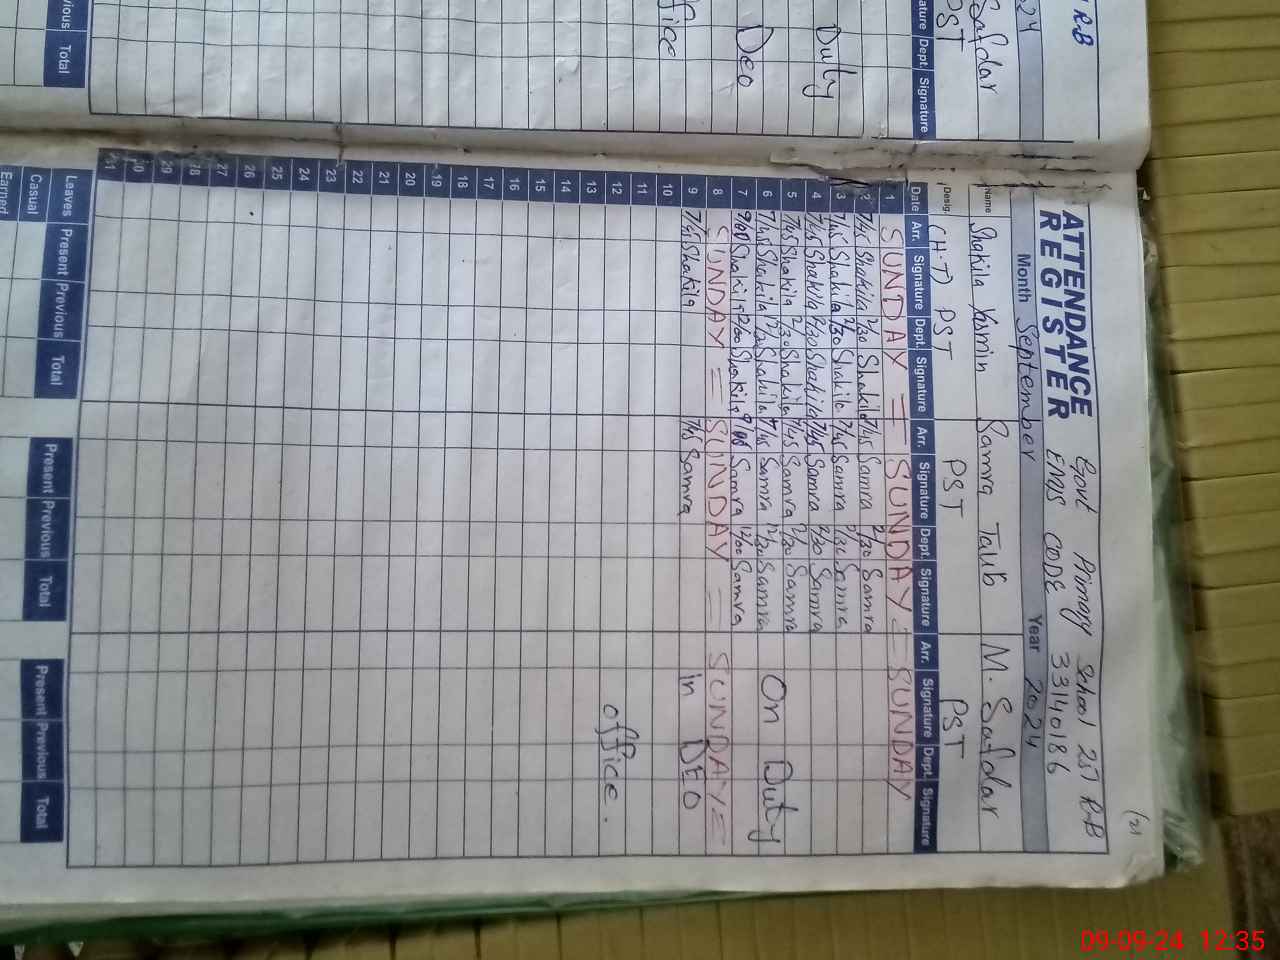 R.B
24
Safdar
PST
Signature Dept. Signature
Duty
Deo
office
Total
(21
ATTENDANCE REGISTER
Govt Primary School 257 R-B
EMIS CODE 33140186
Month September Year 2024
Name Shakila Yasmin Samra Taub M. Safdar
Desig. (H.T) PST PST PST
Date Arr. Signature Dept. Signature Arr. Signature Dept. Signature Arr. Signature Dept. Signature
1 SUNDAY = SUNDAY = SUNDAY
2 7/45 Shakila 2/30 Shakila 7/45 Samra 2/30 Samra
3 7/45 Shakila 2/30 Shakila 7/45 Samra 2/30 Samra
4 7/45 Shakila 2/30 Shakila 7/45 Samra 2/30 Samra
5 7/45 Shakila 2/30 Shakila 7/45 Samra 2/30 Samra
6 7/45 Shakila 12/30 Shakila 7/45 Samra 12/30 Samra On Duty
7 9/00 Shakila 12/00 Shakila 9/00 Samra 12/00 Samra
8 SUNDAY = SUNDAY = SUNDAY =
9 7/45 Shakila 7/45 Samra in DEO
10
11
12 office.
13
14
15
16
17
18
19
20
21
22
23
24
25
26
27
28
29
30
31
Leaves Present Previous Total Present Previous Total Present Previous Total
Casual
Earned
09-09-24 12:35